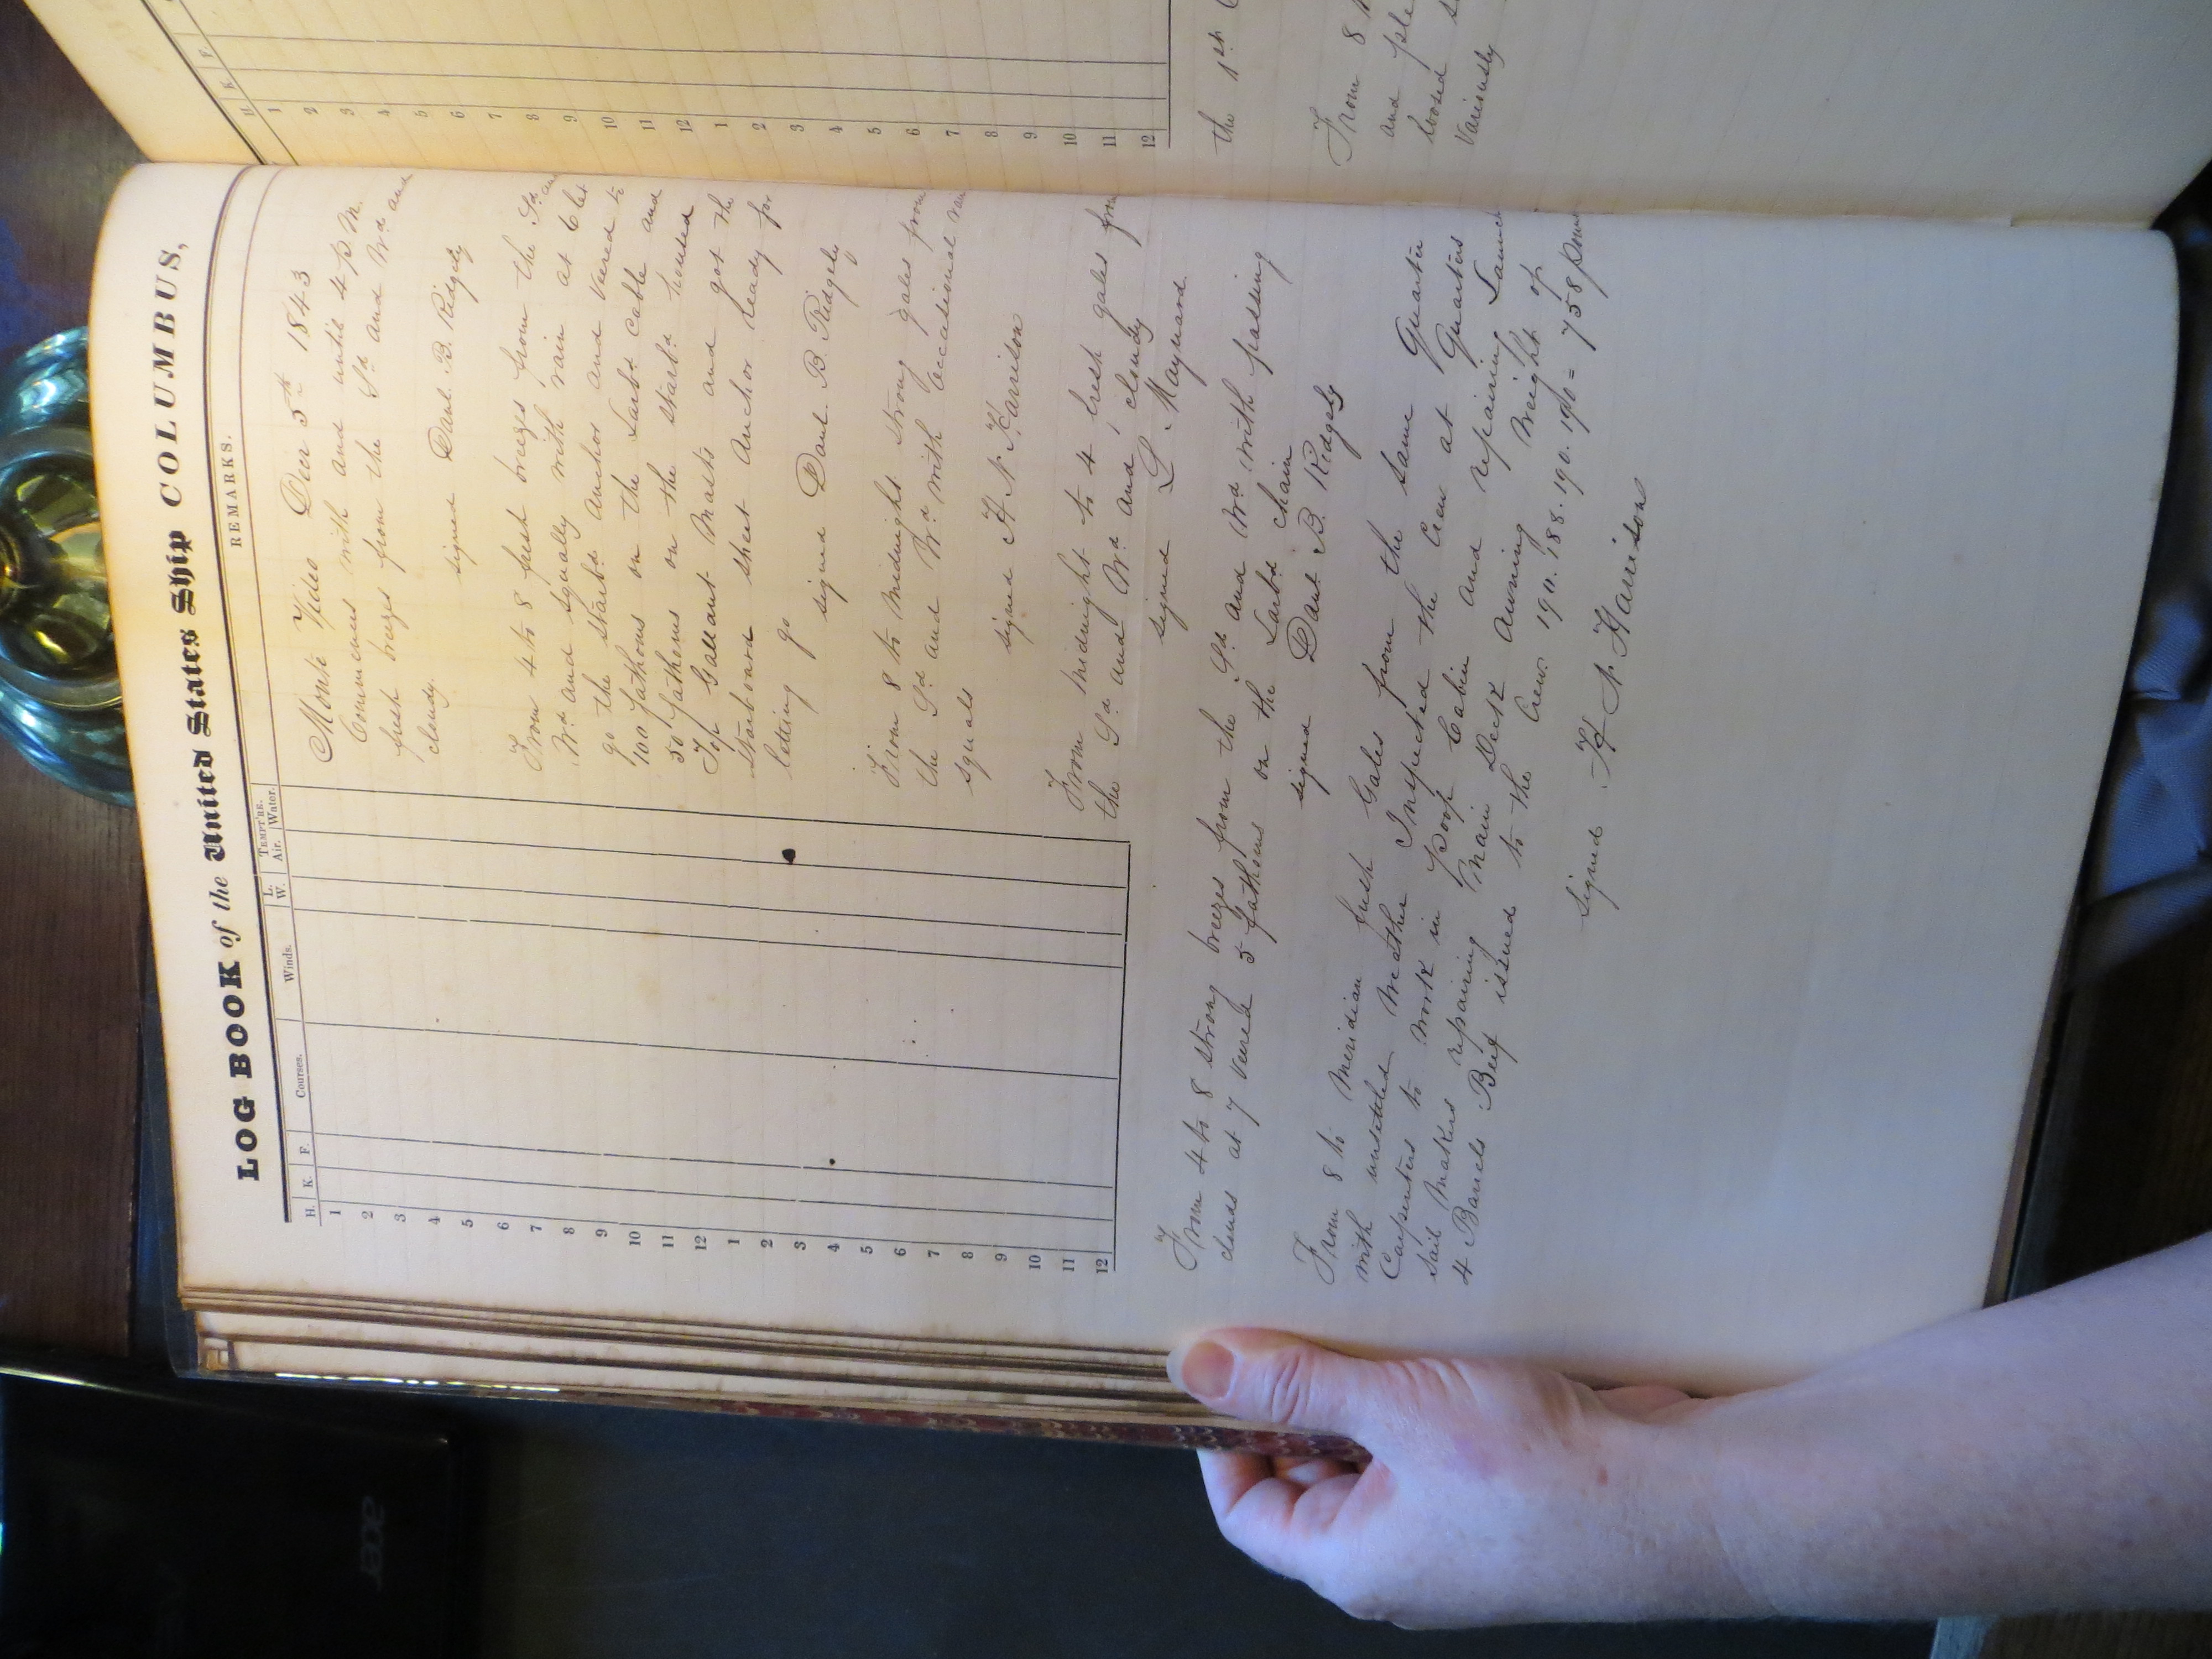 LOG BOOK of the United States Ship COLUMBUS,
H. K. F. Courses. Winds. L. W. TEMPT'RE. Air. Water. REMARKS.
1
2
3
4
5
6
7
8
9
10
11
12
1
2
3
4
5
6
7
8
9
10
11
12
Monte Video Decr 5th 1843
Commences with and until 4 p.M.
fresh breezes from the Sd and Wd and
cloudy.
signed Danl. B. Ridgely
From 4 to 8 fresh breezes from the Sd and
Wd and squally with rain at 6 let
go the Starbd anchor and veered to
100 fathoms on the Larbd cable and
50 fathoms on the Starbd housed
Top Gallant Masts and got the
Starboard sheet anchor ready for
letting go
signed Danl. B. Ridgely
From 8 to Midnight strong gales from
the Sd and Wd with occasional rain
squals
signed H N Harrison
From midnight to 4 fresh gales from
the Sd and Wd and cloudy
signed L. Maynard
From 4 to 8 strong breezes from the Sd and Wd with passing
clouds at 7 veered 5 fathoms on the Larbd chain
signed Danl B. Ridgely
From 8 to Meridian fresh Gales from the same Quarter
with unsettled weather Inspected the Crew at Quarters
Carpenters to work in poop Cabin and repairing Launch
Sail Makers repairing Main Deck Awning
4 Barrels Beef issued to the Crew Weight of
190. 188. 190. 190 = 758 pounds
signed H. N. Harrison
H. K. F.
1
2
3
4
5
6
7
8
9
10
11
12
1
2
3
4
5
6
7
8
9
10
11
12
the 1st
From 8
and
loosed
variously
acer